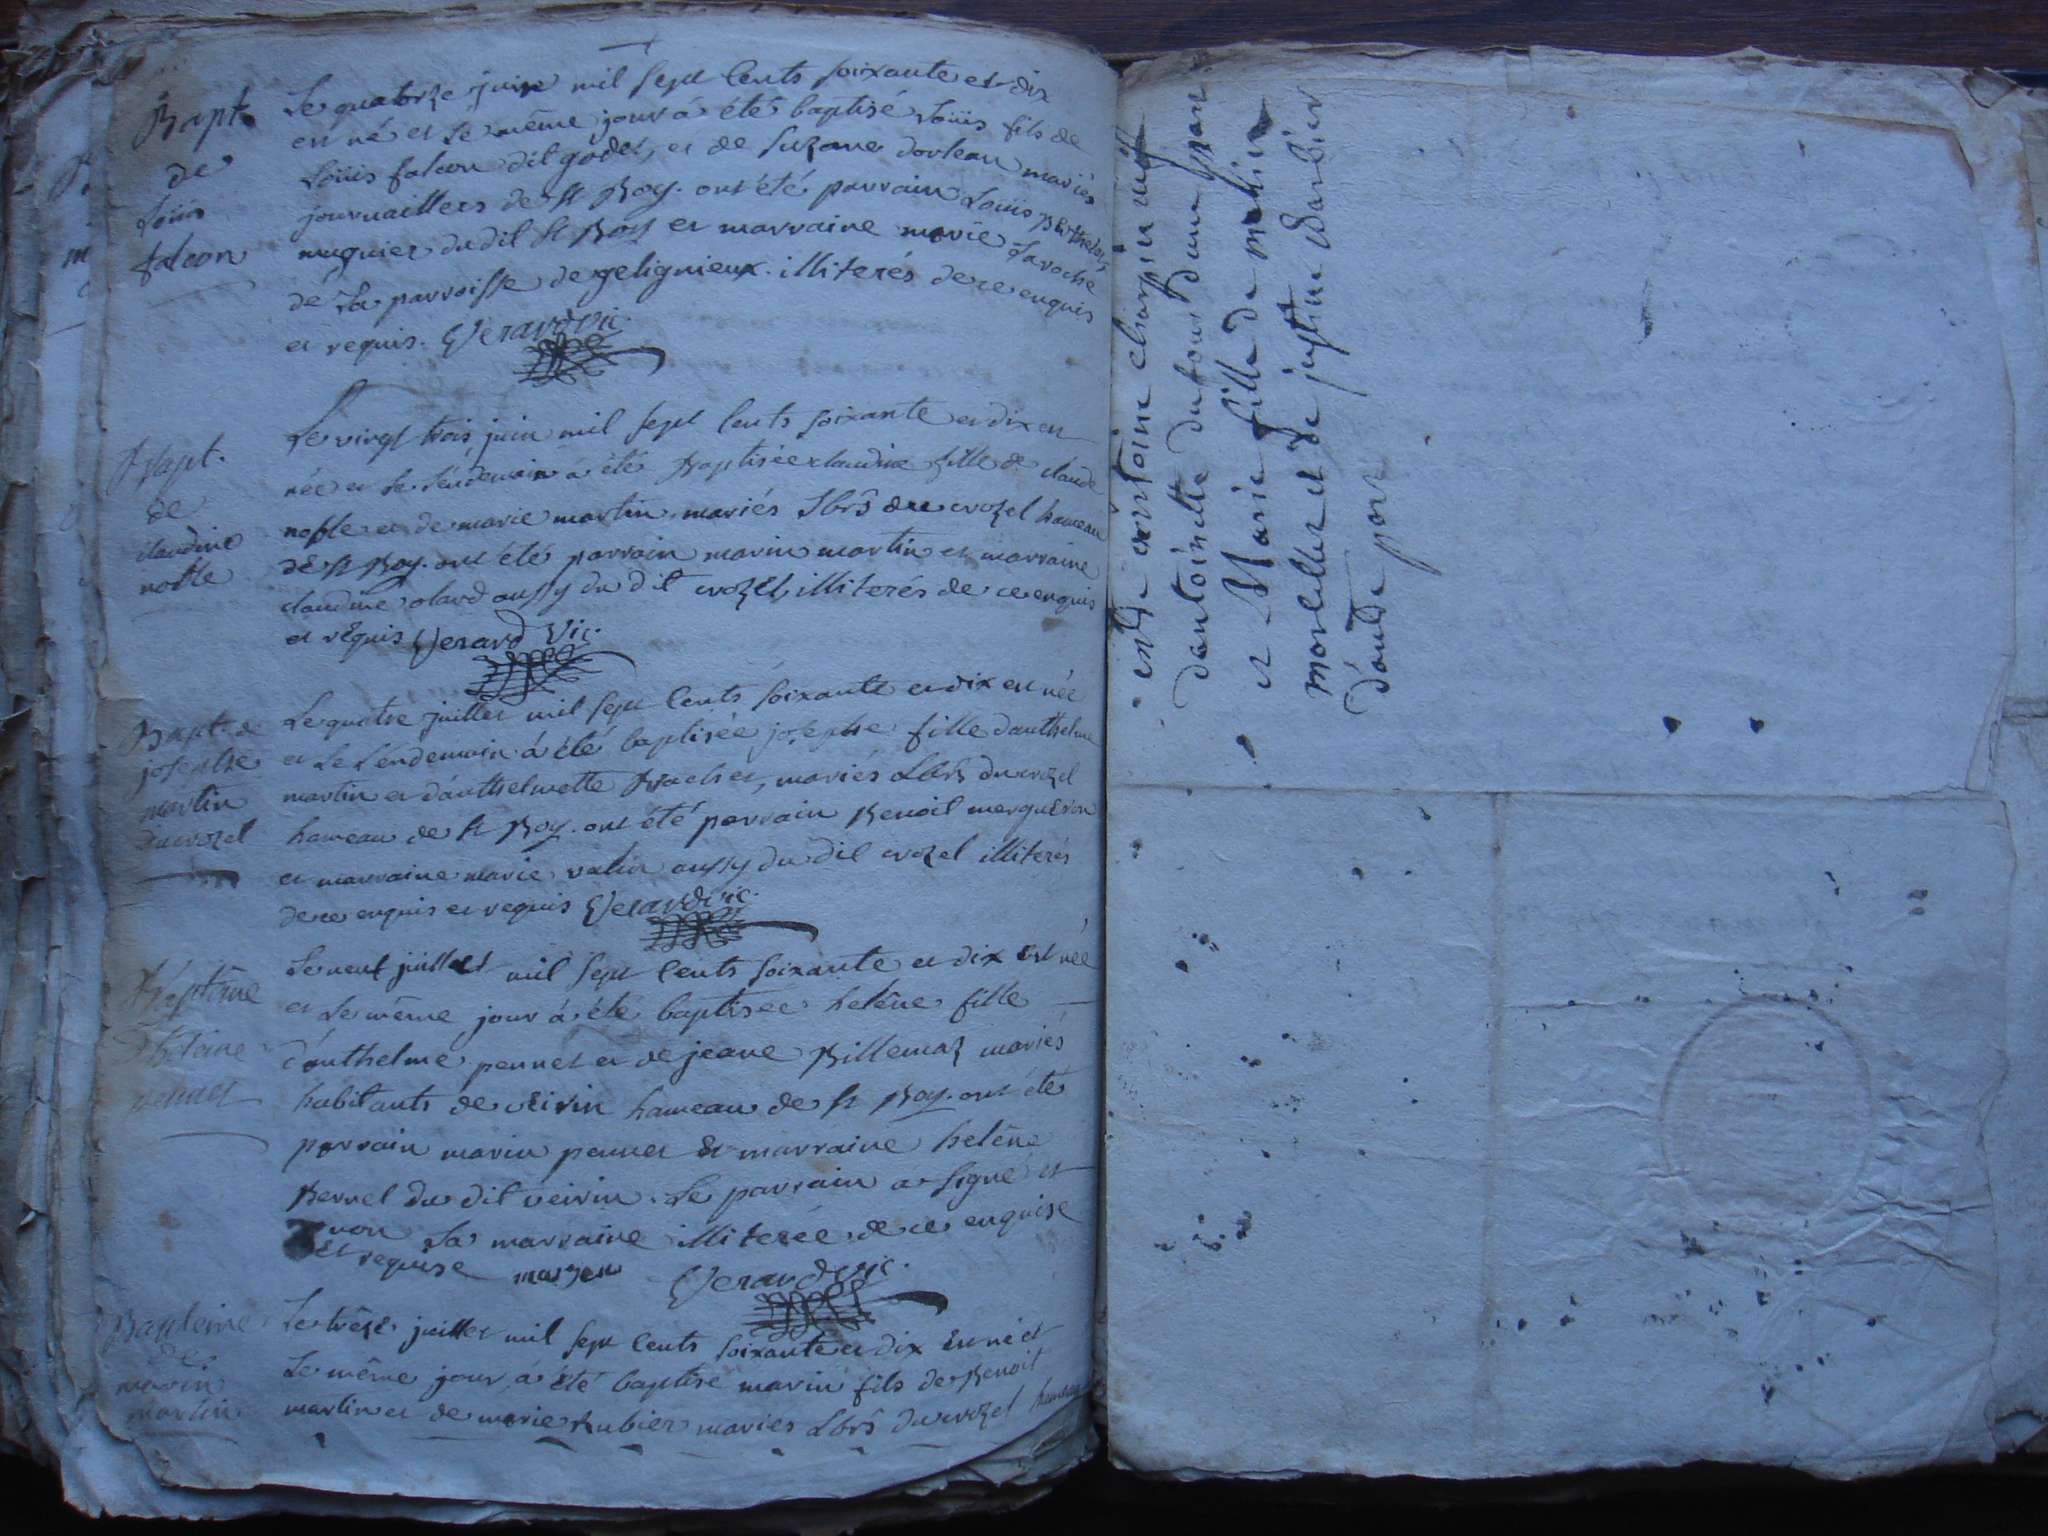 Bapt.
de
Loüis
falcon
Le quatorze juin mil sept cents soixante et dix
est né et le même jour á été baptisé Loüis fils de
Loüis falcon dit godet, et de suzane dorlean mariés
journailliers de st Boy. ont été parrain Loüis
mugnier du dit st Boy et marraine marie Laroche
de La parroisse de gelignieux. illiterés de ce enquis
et requis. Gerard vic.
Bapt.
de
claudine
noble
Le vingt trois juin mil sept cents soixante et dix est
née et Le Lendemain á été Baptisée claudine fille de claude
noble et de marie martin mariés Lbrs du crozel hameau
de st Boy. ont été parrain marin martin et marraine
claudine olard aussy du dit crozel, illiterés de ce enquis
et requis Gerard Vic.
Bapt. de
josephe
martin
du crozel
Le quatre juillet mil sept cents soixante et dix est née
et Le Lendemain á été baptisée josephe fille d'anthelme
martin et d'anthelmette Brachet, mariés Lbrs du crozel
hameau de st Boy. ont été parrain Benoit merqueron
et marraine marie valin aussy du dit crozel illiterés
de ce enquis et requis Gerard vic.
Baptême
d'heleine
pennet
Le neuf juillet mil sept cents soixante et dix est née
et Le même jour á été baptisée helêne fille
d'anthelme pennet et de jeane Billemaz mariés
habitants de veirin hameau de st Boy. ont été
parrain marin pennet et marraine helêne
pernet du dit veirin. Le parrain a signé et
non La marraine illiterée de ce enquise
et requise Gerard vic.
Baptême
de
marin
martin
Le trêze juillet mil sept cents soixante et dix est né et
Le même jour á été baptisé marin fils de Benoit
martin et de marie Rubier mariés Lbrs du crozel hameau
entre antoine charpin
dantoinette dufour dune part
et Marie fille de mathieu
morellet et de justine Barbier
d'autre part